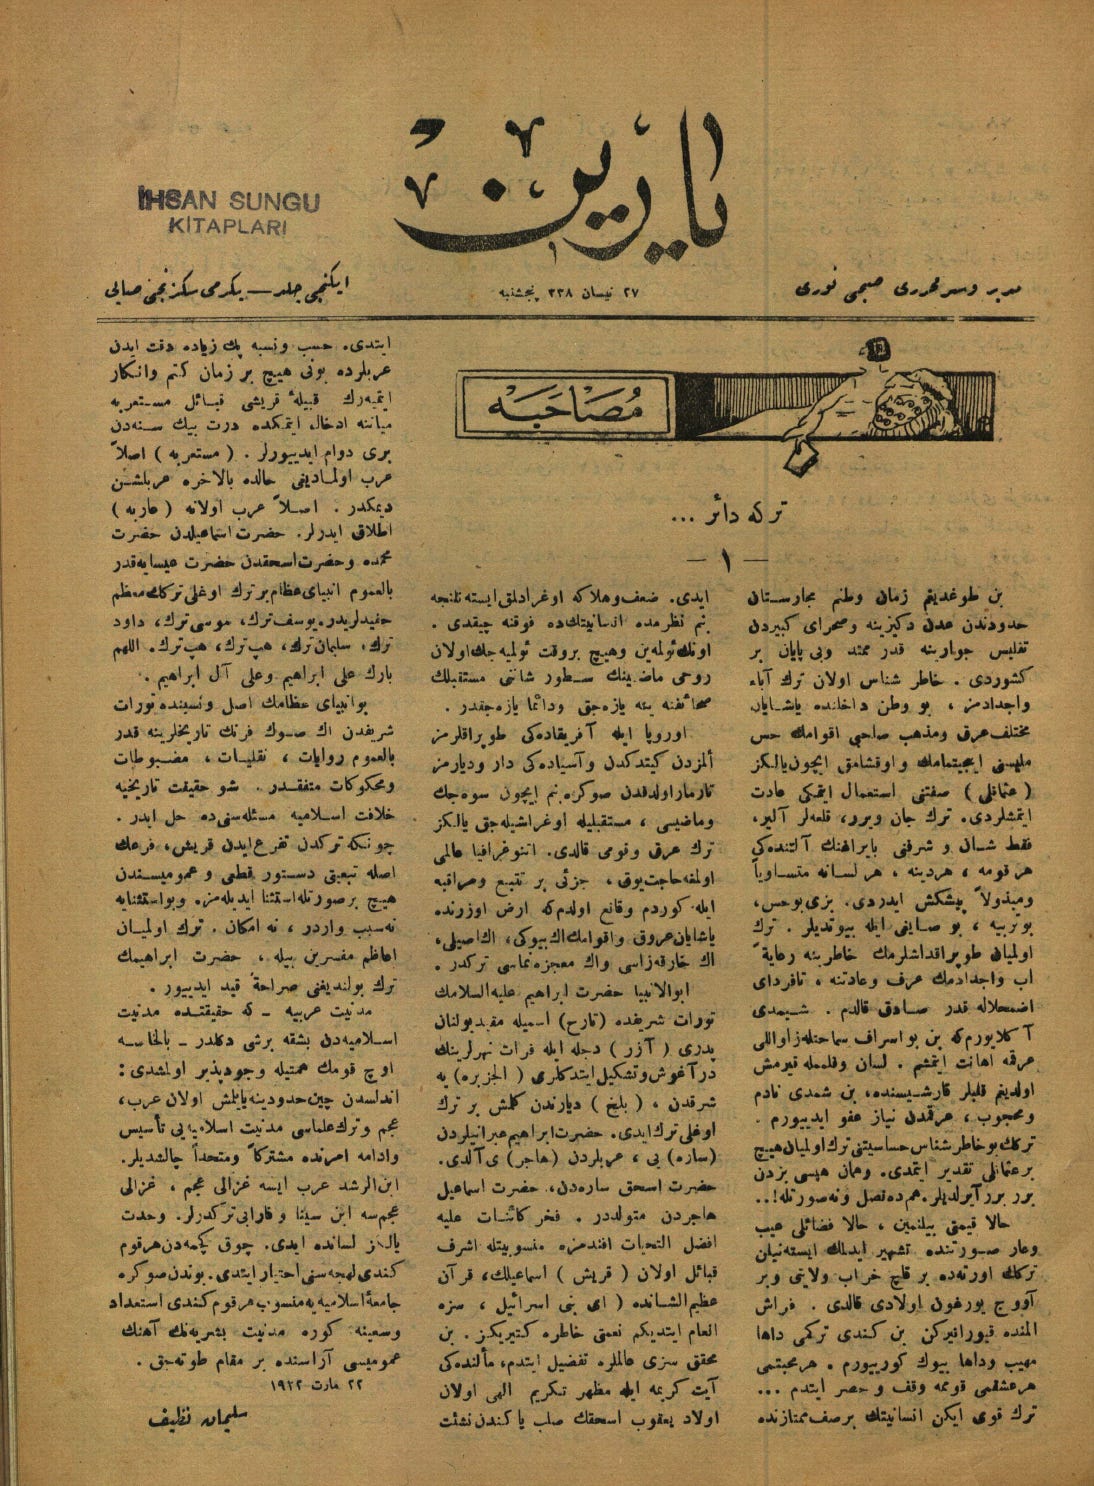 يارين
İHSAN SUNGU
KİTAPLARI
مدير وسر محررى صبحى نورى
٢٧ نيسان ٣٣٨ پنجشنبه
ايكنجى جلد — يكرمى سكزنجى صايى
مُصَاحَبَه
تركه دائر ...
— ١ —
بن طوغديغم زمان وطنم مجارستان
حدودندن عدن دكيزينه وصحراى كبيردن
تفليس جوارينه قدر ممتد وبى پايان بر
كشوردى . خاطر شناس اولان ترك آباء
واجدادمز ، بو وطن داخلنده ياشايان
مختلف عرق ومذهب صاحبى اقوامك حس
مليسنى اينجيتمامك واوقشامق ايچون يالكز
( عثمانلى ) صفتنى استعمال ايتمكى عادت
ايتمشلردى . ترك جان ويرر، قلعه‌لر آلير،
فقط شان و شرفنى بايراغنك آلتنده‌كى
هر قومه ، هر دينه ، هر لسانه متساوياً
ومبذولاً پيشكش ايدردى . بزى بو حس،
بو تربيه ، بو صافيت ايله بيوتديلر . ترك
اولميان طوپراقداشلرمك خاطرينه رعايةً
اب واجدادمك عرف وعادتنه ، تا فرداى
اضمحلاله قدر صادق قالدم . شيمدى
آكلايورم كه بن بو اسراف سماحتله زاوللى
عرقه اهانت ايتمشم . لسان وقلمله قيرمش
اولديغم قلبلر قارشيسنده، بن شمدى نادم
ومحجوب ، عرقمدن نياز عفو ايدييورم .
تركك بو خاطر شناس حساسيتنى ترك اولميان هيچ
بر عثمانلى تقدير ايتمدى. وهمان هپسى بزدن
برر برر آيرلديلر. هم ده نصل و نه صورتله! ..
حالا قيمتى بيلنمين ، حالا فضائلى عيب
وعار صورتنده تشهير ايدلمك ايسته‌نيلن
تركك اورته‌ده بر قاچ خراب ولايتى وبر
آووج يورغون اولادى قالدى . فراش
المنده قيورانيركن بن كندى تركمى داها
مهيب وداها بيوك كورييورم . هر محبتمى
هر عشقمى قوممه وقف و حصر ايتدم ...
ترك قوى ايكن انسانيتك بر صف ممتازنده
ايدى. ضعف وهلاكه اوغرادلق ايسته‌نلنجه
بنم نظرمده انسانيتك ده فوقنه چيقدى .
اونك ئولمه‌ين وهيچ بر وقت ئولميه‌جك اولان
روحى ماضينك سطور شاننى مستقبلك
صحائفنه ينه يازه‌جق ودائما يازه‌جقدر .
اوروپا ايله آفريقاده‌كى طوپراقلرمز
ألمزدن كيتدكدن و آسياده‌كى دار وديارمز
تارمار اولدقدن صوكره بنم ايچون سوه‌جك
وماضيسى ، مستقبليله اوغراشيله‌جق يالكز
ترك عرق وقومى قالدى. اتنوغرافيا عالمى
اولمغه حاجت يوق، جزئى بر تتبع ومراقبه
ايله كوردم وقانع اولدم كه ارض اوزرنده
ياشايان عروق واقوامك اك بيوكى، اك اصيلى،
اك خارقه‌زاسى واك معجزه‌نماسى تركدر .
ابوالانبيا حضرت ابراهيم عليه السلامك
تورات شريفده (تارح) اسميله مقيد بولنان
پدرى ( آزر ) دجله ايله فرات نهرلرينك
در آغوش وتشكيل ايتدكلرى ( الجزيره ) يه
شرقدن ، ( بليخ ) ديارندن كلمش بر ترك
اوغلى ترك ايدى. حضرت ابراهيم عبرانيلردن
(ساره) يى ، عربلردن (هاجر) ى آلدى.
حضرت اسحق ساره‌دن، حضرت اسماعيل
هاجردن متولددر . فخر كائنات عليه
افضل التحيات افندمزه منسوبيتله اشرف
قبائل اولان ( قريش ) اسماعيلك، قرآن
عظيم الشانده ( اى بنى اسرائيل ، سزه
انعام ايتديكم نعمتى خاطره كتيريكز. بن
محقق سزى عالملره تفضيل ايتدم، مألنده‌كى
آيت كريمه ايله مظهر تكريم الهى اولان
اولاد يعقوب اسحقك صلب پاكندن نشئت
ايتدى. حسب ونسبه پك زياده دقت ايدن
عربلرده بونى هيچ بر زمان كتم وانكار
ايتميه‌رك قبيلهٔ قريشى قبائل مستعربه
مياننه ادخال ايتمكده درت بيك سنه‌دن
برى دوام ايدييورلر . ( مستعربه ) اصلاً
عرب اولمادينى حالده بالاخره عربلشن
ديمكدر . اصلاً عرب اولانه ( عاربه )
اطلاق ايدرلر. حضرت اسماعيلدن حضرت
محمده وحضرت اسحقدن حضرت عيسايه قدر
بالعموم انبياى عظام بر ترك اوغلى تركك معظم
حفيدلريدر. يوسف ترك، موسى ترك، داود
ترك، سليمان ترك، هپ ترك، هپ ترك. اللهم
بارك على ابراهيم وعلى آل ابراهيم .
بو انبياى عظامك اصل ونسبنده تورات
شريفدن اك صوك فرنك تاريخلرينه قدر
بالعموم روايات ، نقليات ، مضبوطات
ومحكوكات متفقدر. شو حقيقت تاريخيه
خلافت اسلاميه مسئله‌سنى ده حل ايدر .
چونكه تركدن تفرع ايدن قريش، فرعك
اصله تبعيتى دستور قطعى و عموميسندن
هيچ بر صورتله استثنا ايديله‌مز. وبو استثنايه
نه سبب واردر ، نه امكان . ترك اولميان
اعاظم مفسرين بيله ، حضرت ابراهيمك
ترك بولنديغنى صراحةً قيد ايدييور .
مدنيت عربيه ـ كه حقيقتده مدنيت
اسلاميه‌دن بشقه برشى دكلدر ـ بالخاصه
اوچ قومك همتيله وجودپذير اولمشدى :
اندلسدن چين حدودينه يايلمش اولان عرب،
عجم وترك علماسى مدنيت اسلاميه‌يى تأسيس
وادامه امرنده مشتركاً ومتحداً چالشديلر.
ابن الرشد عرب ايسه غزالى عجم ، غزالى
عجم سه ابن سينا و فارابى تركدرلر. وحدت
يالكز لسانده ايدى. چوق كچمه‌دن هر قوم
كندى لهجه‌سنى اختيار ايتدى. بوندن صوكره
جامعهٔ اسلاميه‌يه منسوب هر قوم كندى استعداد
وسعينه كوره مدنيت بشريه‌نك آهنك
عموميسى آراسنده بر مقام طوته‌جق .
٢٢ مارت ١٩٢٢
سليمان نظيف